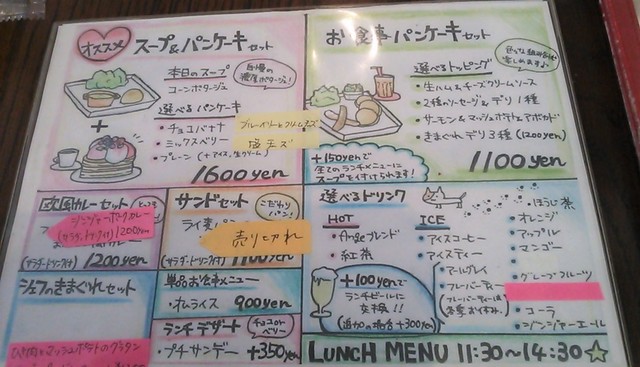 オススメ
スープ&パンケーキセット
本日のスープ
コーンポタージュ
自慢の
濃厚ポタージュ!
選べるパンケーキ
・チョコバナナ
・ミックスベリー
・プレーン(+アイス,生クリーム)
ブルーベリーとクリームチーズ
1600yen
お食事パンケーキセット
色々な組み合わせ
楽しめますよ
選べるトッピング
・生ハム&チーズクリームソース
・2種のソーセージ&デリ1種
・サーモン&マッシュポテト&アボカド
・きまぐれデリ3種(1200yen)
1100yen
+150yenで
全てのランチメニューに
スープを付けられます!
欧風カレーセット
ジンジャーポークカレー
(サラダ、ドリンク付)1200yen
(サラダ・ドリンク付)
1200yen
サンドセット
こだわり
パン!
ライ麦パン
売り切れ
(サラダ・ドリンク付)1100yen
シェフのきまぐれセット
ひき肉とマッシュポテトのグラタン
単品お食事メニュー
・オムライス 900yen
ランチデザート
チョコor
ベリー
・プチサンデー +350yen
選べるドリンク
HOT
・紅茶
ICE
・アイスコーヒー
・アイスティー
・アールグレイ
・フレーバーティー
・ほうじ茶
・オレンジ
・アップル
・マンゴー
・グレープフルーツ
・コーラ
・ジンジャーエール
+100yenで
ランチビールに
変換!!
(追加の場合+300yen)
LUNCH MENU 11:30〜14:30☆